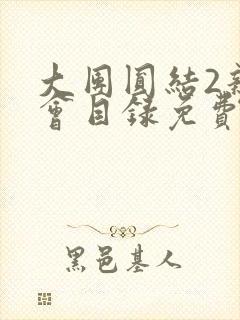 大团圆結2新
會目録免費
黑邑基人